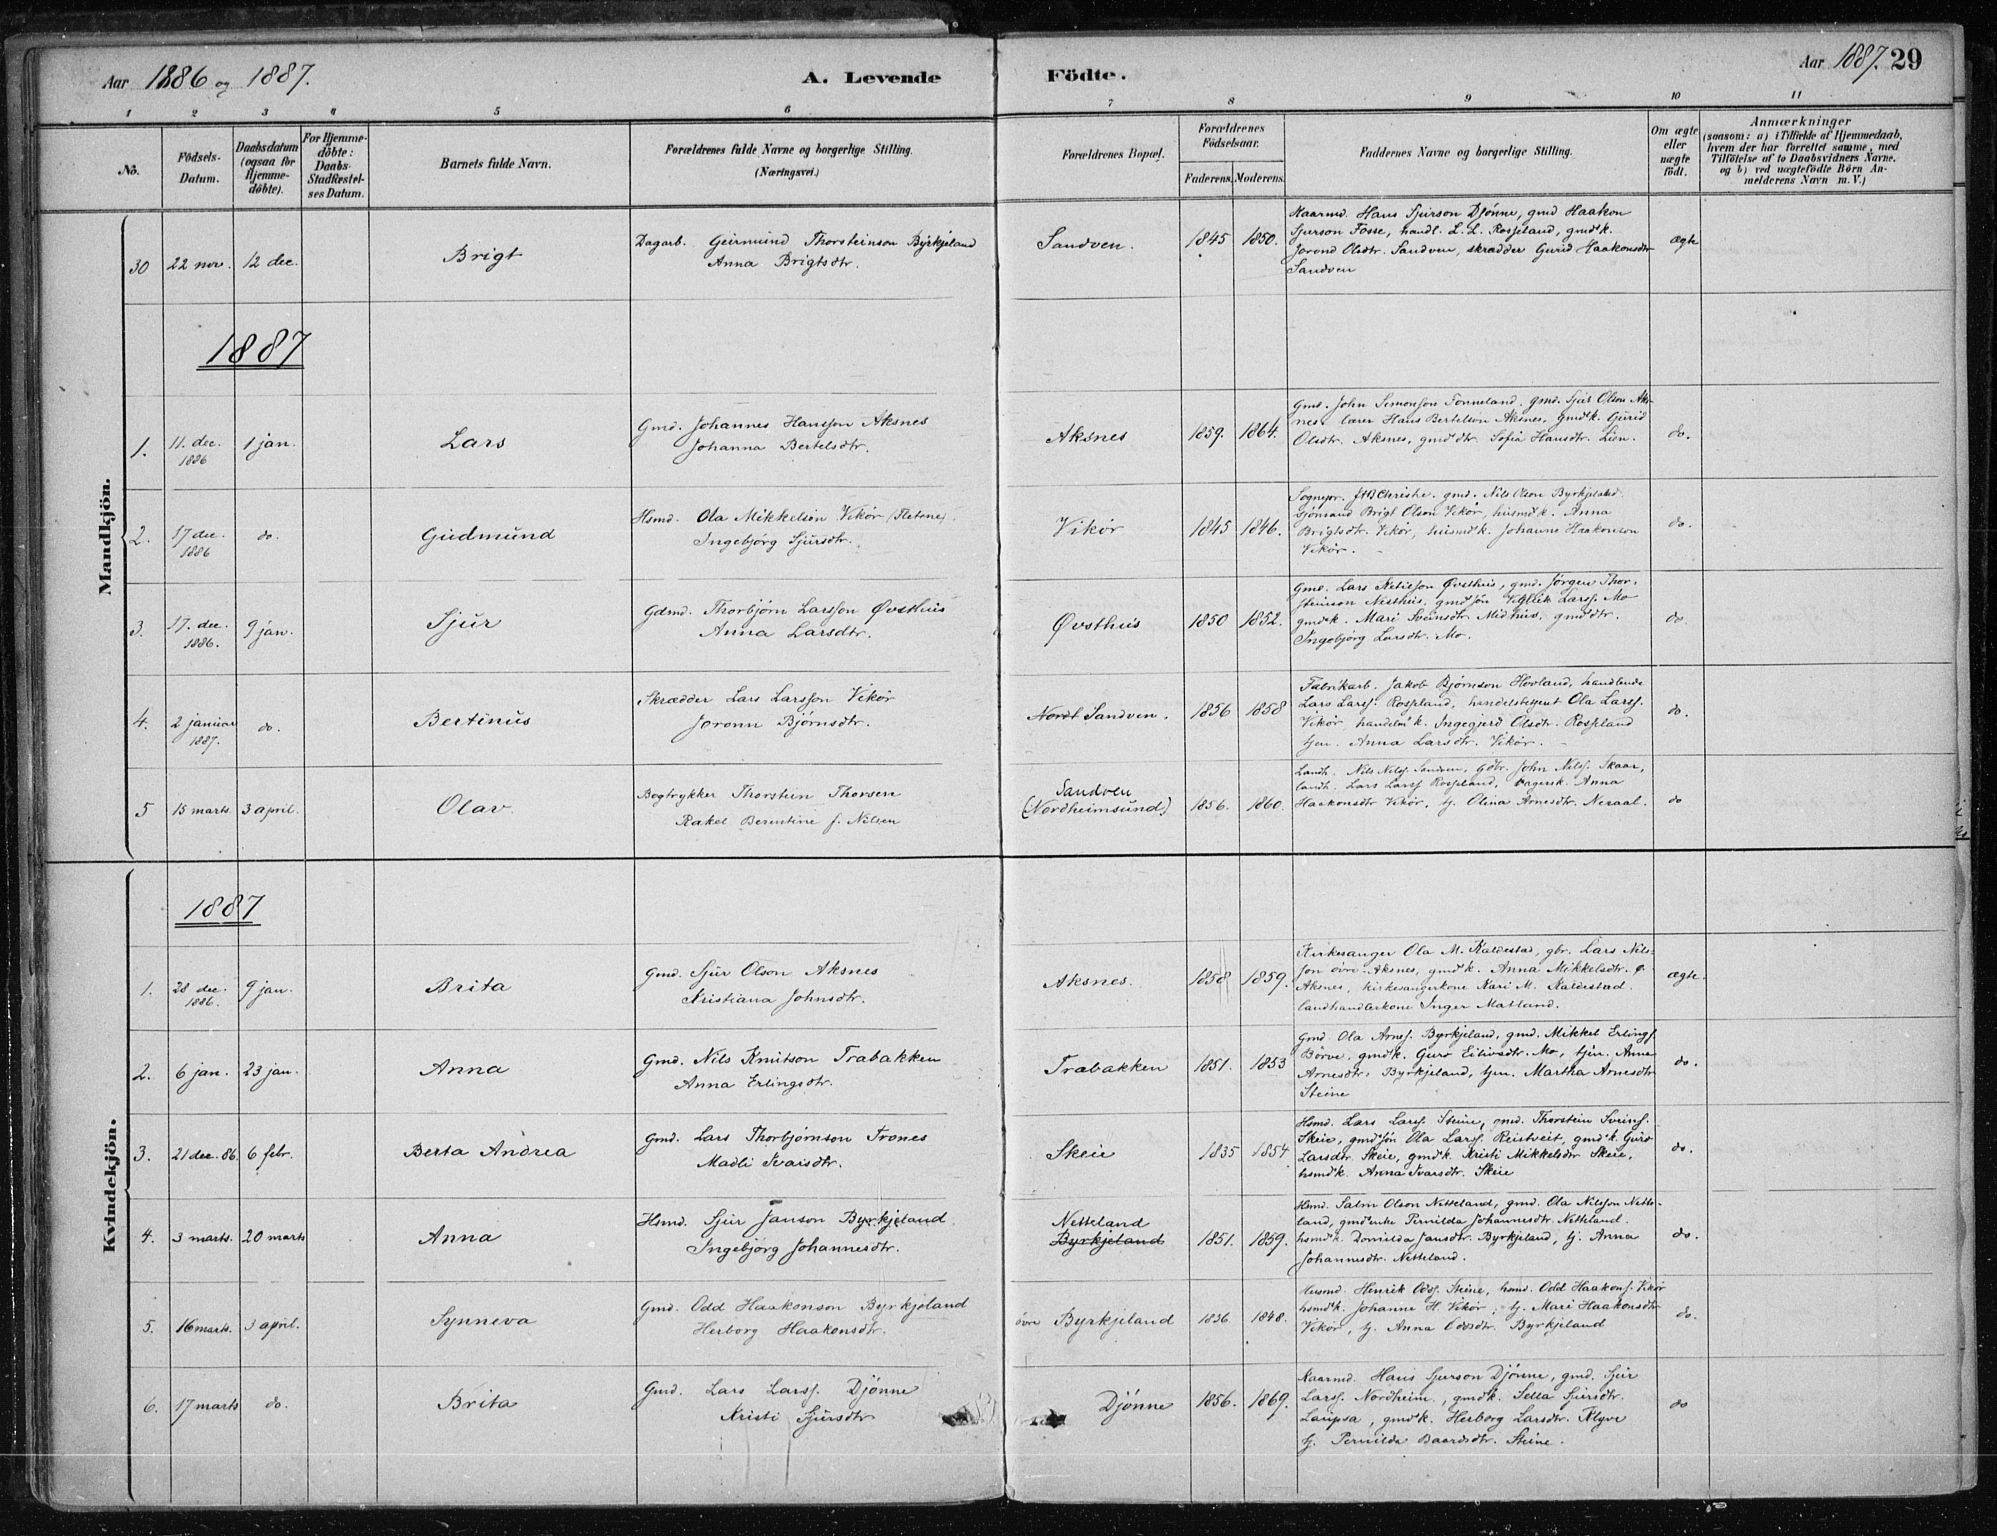 Aar 1886 og 1887.
A. Levende Födte.
Aar 1887. 29
1 2 3 4 5 6 7 8 9 10 11
No.
Födsels-Datum.
Daabsdatum (ogsaa for Hjemme-döbte).
For Hjemme-döbte: Daabs-Stadfestel-ses Datum.
Barnets fulde Navn.
Forældrenes fulde Navne og borgerlige Stilling. (Næringsvei.)
Forældrenes Bopæl.
Forældrenes Födselsaar.
Faderens. Moderens.
Faddernes Navne og borgerlige Stilling.
Om ægte eller uægte födt.
Anmærkninger
(saasom: a) i Tilfælde af Hjemmedaab,
hvem der har forrettet samme, med
Tilföielse af to Daabsvidners Navne.
og b) ved uægtefödte Börn An-
melderens Navn m. V.)
Mandkjön.
30 22 nov. 12 dec. Brigt
Dagarb. Geirmund Thorsteinson Byrkjeland
Anna Brigtsdtr.
Sandven. 1845 1850.
Kaarmd. Hans Sjurson Djønne, gmd Haakon
Sjurson Fosse, handl. L. L. Rosseland, gmdk.
Jorond Olsdtr. Sandven, skrædder Gurid Haakonsdtr
Sandven
ægte
1887
1. 11. dec. 1886 1 jan. Lars
Gmd. Johannes Hansson Aksnes
Johanna Bertelsdtr.
Aksnes 1859. 1864.
Gmd. John Simonson Tonneland. gmd. Sjur Olson Aks-
nes. lærer Hans Bertelson Aksnes, gmdk. Gurid
Olsdtr. Aksnes, gmddtr. Sofia Hansdtr. Lien.
do.
2. 17 dec. 1886 do. Gudmund
Hsmd. Ola Mikkelson Vikør (Fletene).
Ingebjørg Sjursdtr.
Vikør 1845 1846.
Sognepr. Christie. gmd. Nils Olson Byrkjeland.
Brigt Olson Vikør, husmdk. Anna
Brigtsdtr. Vikør, husmdk. Johanne Haakonson
Vikør.
do.
3. 17. dec. 1886. 9 jan. Sjur
Gdmd. Thorbjørn Larsson Øvsthus
Anna Larsdtr.
Øvsthus 1850 1852.
Gmd. Lars Øvsthus, gmd. Jørgen Thor-
steinson Nesthus, gmdsøn Larss. Mo
gmdk. Mari Sveinsdtr. Midhus, gmddtr.
Ingebjørg Larsdtr. Mo.
do
4. 2 januar 1887. do. Bertinus
Skrædder Lars Larsson Vikør
Joronn Bjørnsdtr.
Nordt Sandven. 1856 1858
Fabrikarb. Jakob Bjørnson Hovland, handlende
Lars Larss. Rosseland, handelsbetjent Ola Larss.
Vikør, handelsm k. Ingegjerd Olsdtr. Rosseland
tjen. Anna Larsdtr. Vikør.
do.
5 15 marts. 3 april. Olav
Bogtrykker Thorstein Thorsen
Rakel Berentine f. Nilsen
Sandven (Nordheimsund) 1856. 1860.
Landh. Nils Nilss. Sandven, gdbr. John Nilss. Skaar,
landh. Lars Larss Rosseland, bagersk. Anna
Haakonsdtr Vikør, tj. Olina Arnesdtr. Neraal.
do
Kvindekjön.
1887
1. 28 dec. 1886. 9 jan. Brita
Gmd. Sjur Olson Aksnes
Kristiana Johnsdtr.
Aksnes. 1858 1859.
Kirkesanger Ola M. Kaldestad, gbr. Lars Nils-
son øvre-Aksnes, gmdk. Anna Mikkelsdtr. ø
Aksnes, kirkesangerkone Kari M. Kaldestad.
landhandlerkone Inger Matland.
ægte.
2. 6 jan. 23 jan. Anna
Gmd. Nils Knutson Træbakken
Anna Erlingsdtr.
Træbakken 1851. 1853
Gmd Ola Arnes. Byrkjeland, gmd. Mikkel Erlings.
Børve, gmdk. Guro Eilivsdtr. Mo, tjen. Anna
Arnesdtr. Byrkjeland, tjen. Martha Arnesdtr
Steine
do.
3. 21 dec. 86. 6 febr. Berta Andrea
Gmd. Lars Thorbjørnson Trones
Madli Ivarsdtr.
Skeie 1835 1854
Hsmd. Lars Larss. Steine, gmd. Thorstein Sveins.
Skeie, gmdsøn Ola Larss. Reistveit, gmdk. Guro
Larsdtr. Skeie, gmdk. Kristi Mikkelsdtr Skeie,
hsmdk. Anna Ivarsdtr. Skeie
do.
4. 3 marts. 20 marts Anna
Hsmd. Sjur Janson Byrkjeland
Ingebjørg Johannesdtr.
Netteland Byrkjeland 1851. 1859.
Hsmd. Salm Olson Netteland, gmd. Ola Nilsson Nette-
land, gmdenke Pernilda Johannesdtr. Netteland.
hsmdk. Domilda Jansdtr. Byrkjeland, tj. Anna
Johannesdtr. Netteland.
do.
5. 16 marts. 3 april. Synneva
Gmd. Odd Haakonson Byrkjeland
Herborg Haakonsdtr.
øvre Byrkjeland 1836 1848.
Husmd. Henrik Odds. Steine, hsmd. Odd Haakons. Vikør
hsmdk. Johanne H. Vikør, tj. Mari Haakonsdtr
Vikør, tj. Anna Oddsdtr. Byrkjeland
do.
6. 17 marts do. Brita
Gmd. Lars Larss. Djønne
Kristi Sjursdtr
Djønne 1856. 1869.
Kaarmd. Hans Sjurson Djønne, gmd. Sjur
Larss. Nordheim, gmdk. Sella Sjursdtr.
Laupsa, gmdk. Herborg Larsdtr. Flyve
tj. Pernilda Baardsdtr. Steine.
do